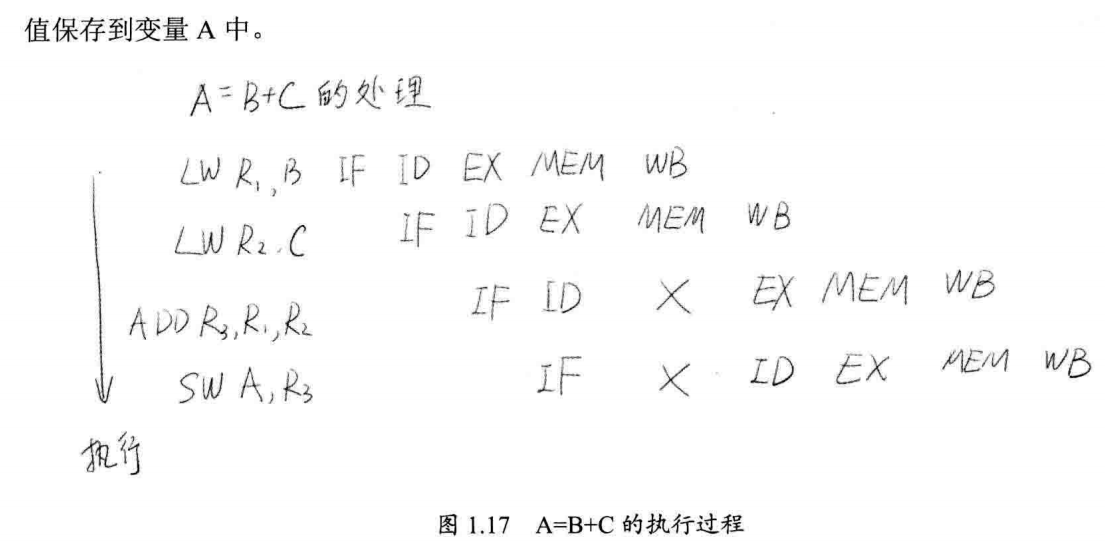 值保存到变量 A 中。
A=B+C 的处理
LW R₁,B IF ID EX MEM WB
LW R₂,C IF ID EX MEM WB
ADD R₃,R₁,R₂ IF ID X EX MEM WB
SW A,R₃ IF X ID EX MEM WB
执行
图 1.17 A=B+C 的执行过程